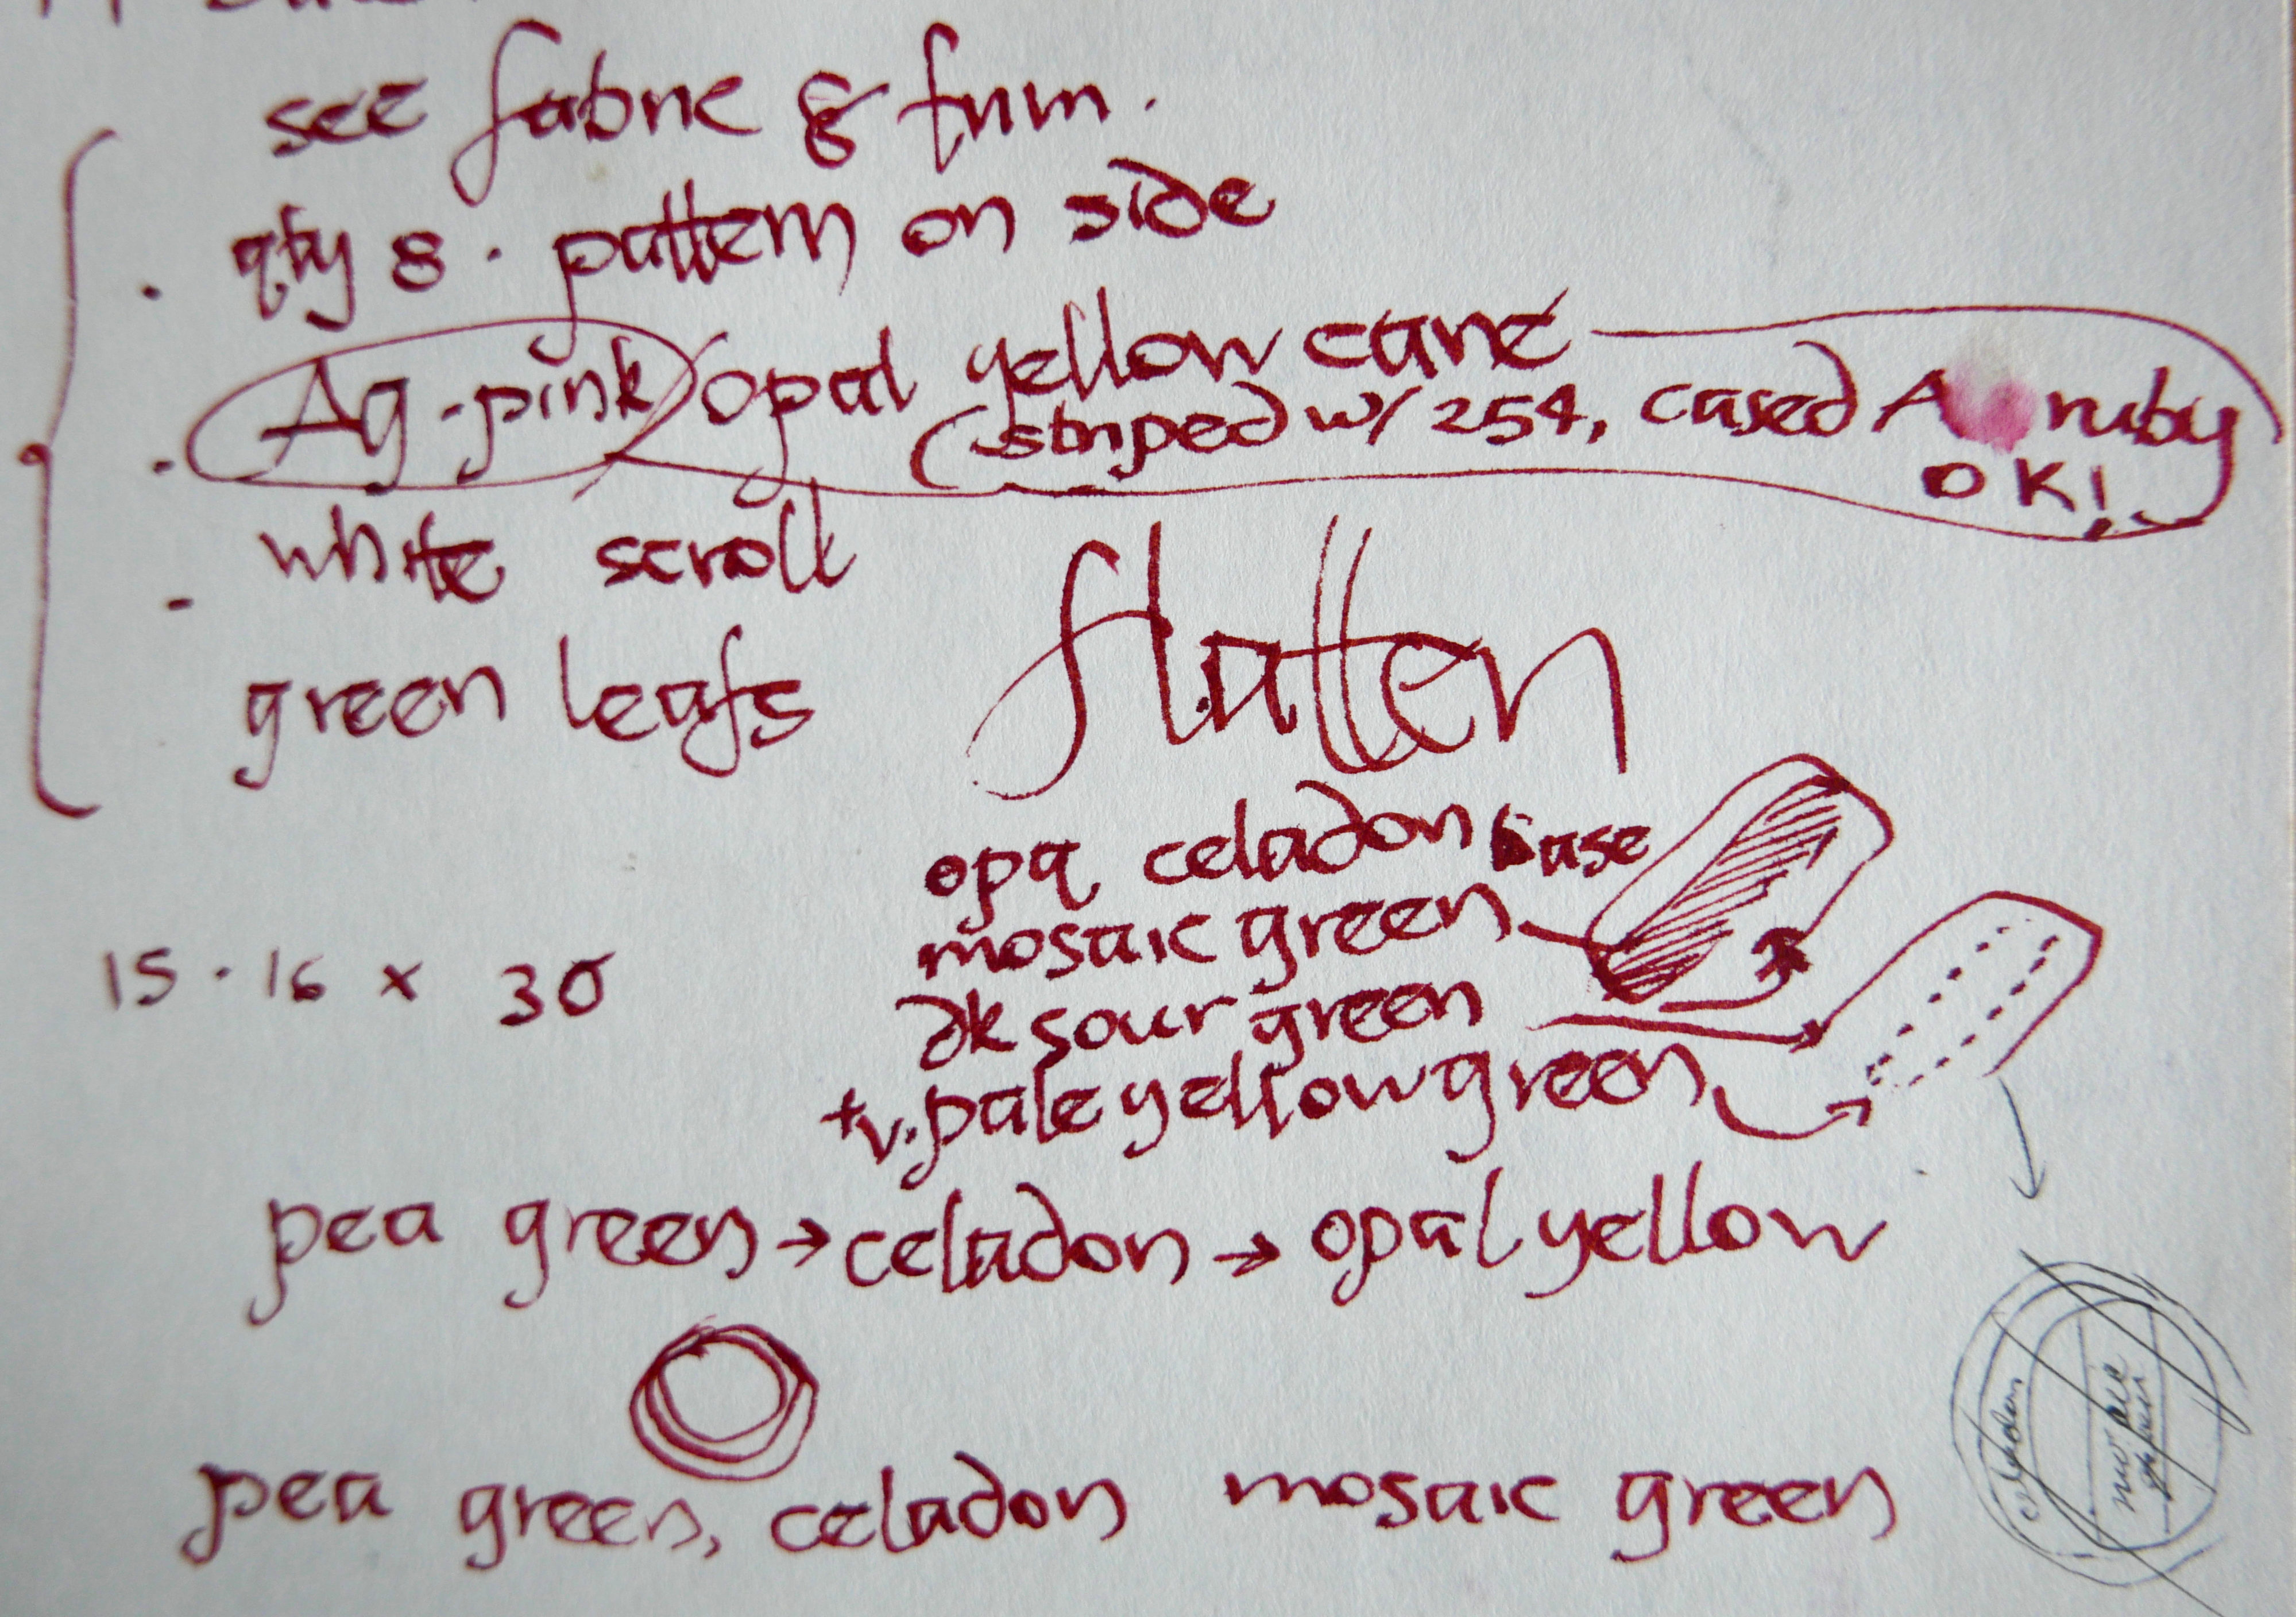 see fabric & trim.
· qty 8 · pattern on side
· Ag-pink opal yellow cane
(striped w/ 254, cased A ruby
OK!
- white scroll
green leafs
flatten
opq celadon base
mosaic green
15 · 16 x 30
dk sour green
+ v. pale yellow green
pea green → celadon → opal yellow
celadon
pea green, celadon mosaic green